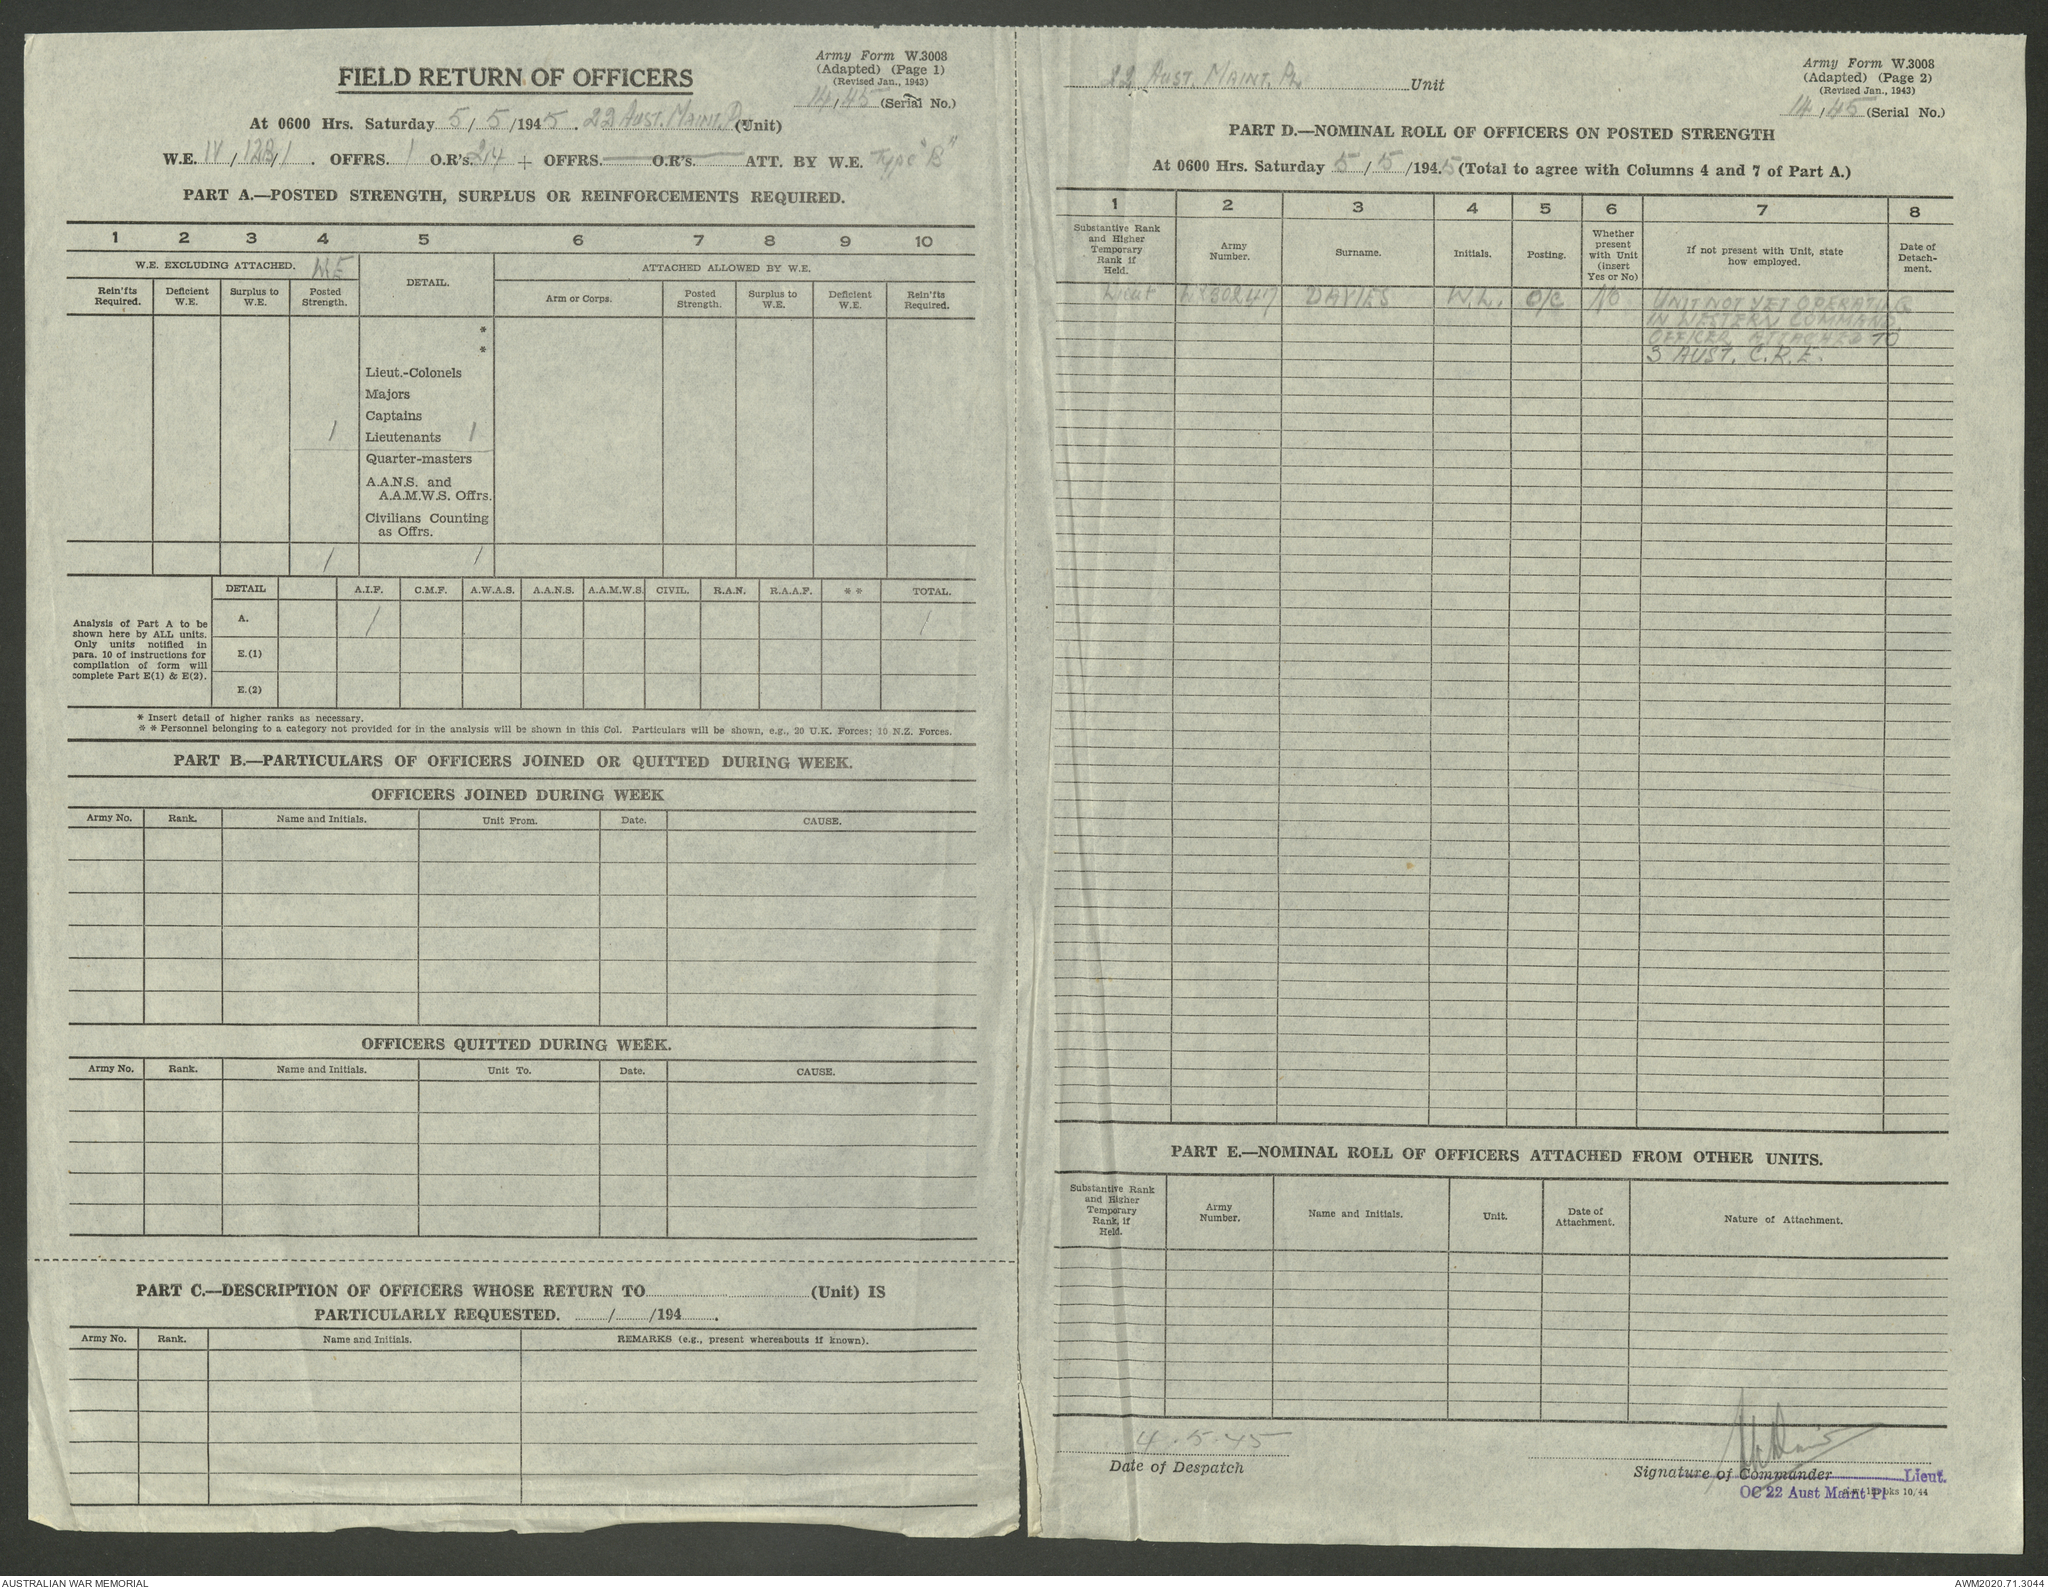 Army Form W.3008
(Adapted) (Page 1)
(Revised Jan., 1943)
14/45 (Serial No.)
FIELD RETURN OF OFFICERS
At 0600 Hrs. Saturday 5/5/1945. 22 Aust. Maint. Pl (Unit)
W.E. IV/122/1. OFFRS. 1 O.R's. 214 + OFFRS. O.R's. ATT. BY W.E. Type "B"
PART A.—POSTED STRENGTH, SURPLUS OR REINFORCEMENTS REQUIRED.
1 2 3 4 5 6 7 8 9 10
W.E. EXCLUDING ATTACHED. W.E
DETAIL.
ATTACHED ALLOWED BY W.E.
Rein'fts Required.
Deficient W.E.
Surplus to W.E.
Posted Strength.
Arm or Corps.
Posted Strength.
Surplus to W.E.
Deficient W.E.
Rein'fts Required.
*
*
Lieut.-Colonels
Majors
Captains
1 Lieutenants 1
Quarter-masters
A.A.N.S. and
A.A.M.W.S. Offrs.
Civilians Counting
as Offrs.
1 1
DETAIL A.I.F. C.M.F. A.W.A.S. A.A.N.S. A.A.M.W.S. CIVIL. R.A.N. R.A.A.F. * * TOTAL.
Analysis of Part A to be
shown here by ALL units.
Only units notified in
para. 10 of instructions for
compilation of form will
complete Part E(1) & E(2).
A. 1 1
E.(1)
E.(2)
* Insert detail of higher ranks as necessary.
* * Personnel belonging to a category not provided for in the analysis will be shown in this Col. Particulars will be shown, e.g., 20 U.K. Forces; 10 N.Z. Forces.
PART B.—PARTICULARS OF OFFICERS JOINED OR QUITTED DURING WEEK.
OFFICERS JOINED DURING WEEK
Army No. Rank. Name and Initials. Unit From. Date. CAUSE.
OFFICERS QUITTED DURING WEEK.
Army No. Rank. Name and Initials. Unit To. Date. CAUSE.
PART C.—DESCRIPTION OF OFFICERS WHOSE RETURN TO (Unit) IS
PARTICULARLY REQUESTED. / /194 .
Army No. Rank. Name and Initials. REMARKS (e.g., present whereabouts if known).
22 Aust. Maint. Pl Unit
Army Form W.3008
(Adapted) (Page 2)
(Revised Jan., 1943)
14/45 (Serial No.)
PART D.—NOMINAL ROLL OF OFFICERS ON POSTED STRENGTH
At 0600 Hrs. Saturday 5/5/1945 (Total to agree with Columns 4 and 7 of Part A.)
1 2 3 4 5 6 7 8
Substantive Rank and Higher Temporary Rank if Held.
Army Number.
Surname.
Initials.
Posting.
Whether present with Unit (insert Yes or No)
If not present with Unit, state how employed.
Date of Detach-ment.
Lieut DAVIES W.L. O/C NO UNIT NOT YET OPERATING
IN WESTERN COMMAND
OFFICER ATTACHED TO
3 AUST. C.R.E.
PART E.—NOMINAL ROLL OF OFFICERS ATTACHED FROM OTHER UNITS.
Substantive Rank and Higher Temporary Rank, if Held.
Army Number.
Name and Initials.
Unit.
Date of Attachment.
Nature of Attachment.
4.5.45
Date of Despatch
Signature of Commander Lieut.
OC 22 Aust Maint Pl
10/44
AUSTRALIAN WAR MEMORIAL
AWM2020.71.3044